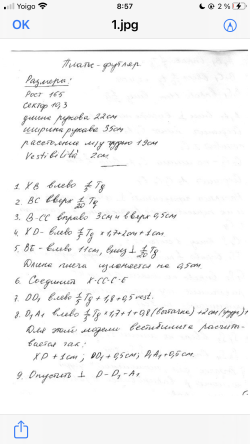 Yoigo
8:57
2 %
OK
1.jpg
Платье-футляр
Размеры:
Рост 165
Сектор 10,3
длина рукава 22см
ширина рукава 35см
расстояние м/у грудью 19см
Vestibilità 2см
1. XB влево ½ Tg
2. BC вверх 1/20 Tg
3. B-CC вправо 3см и вверх 0,5см
4. XD- влево Tg × 1,7+2см+1см
5. BE- влево 11см, вниз ⊥ 1/20 Tg
Длина плеча изменяется на 0,5см.
6. Соединить X-CC-C-E
7. DD₁ влево Tg + 1,8 + 0,5 vest.
8. D₁A₁ влево Tg × 1,7+1+0,8 (вытачка) +2см
Для этой модели вестибилита рассчит-
вается так:
XD + 1см; DD₁ + 0,5см; D₁A₁ + 0,5см.
9. Опустить ⊥ D-D₁-A₁